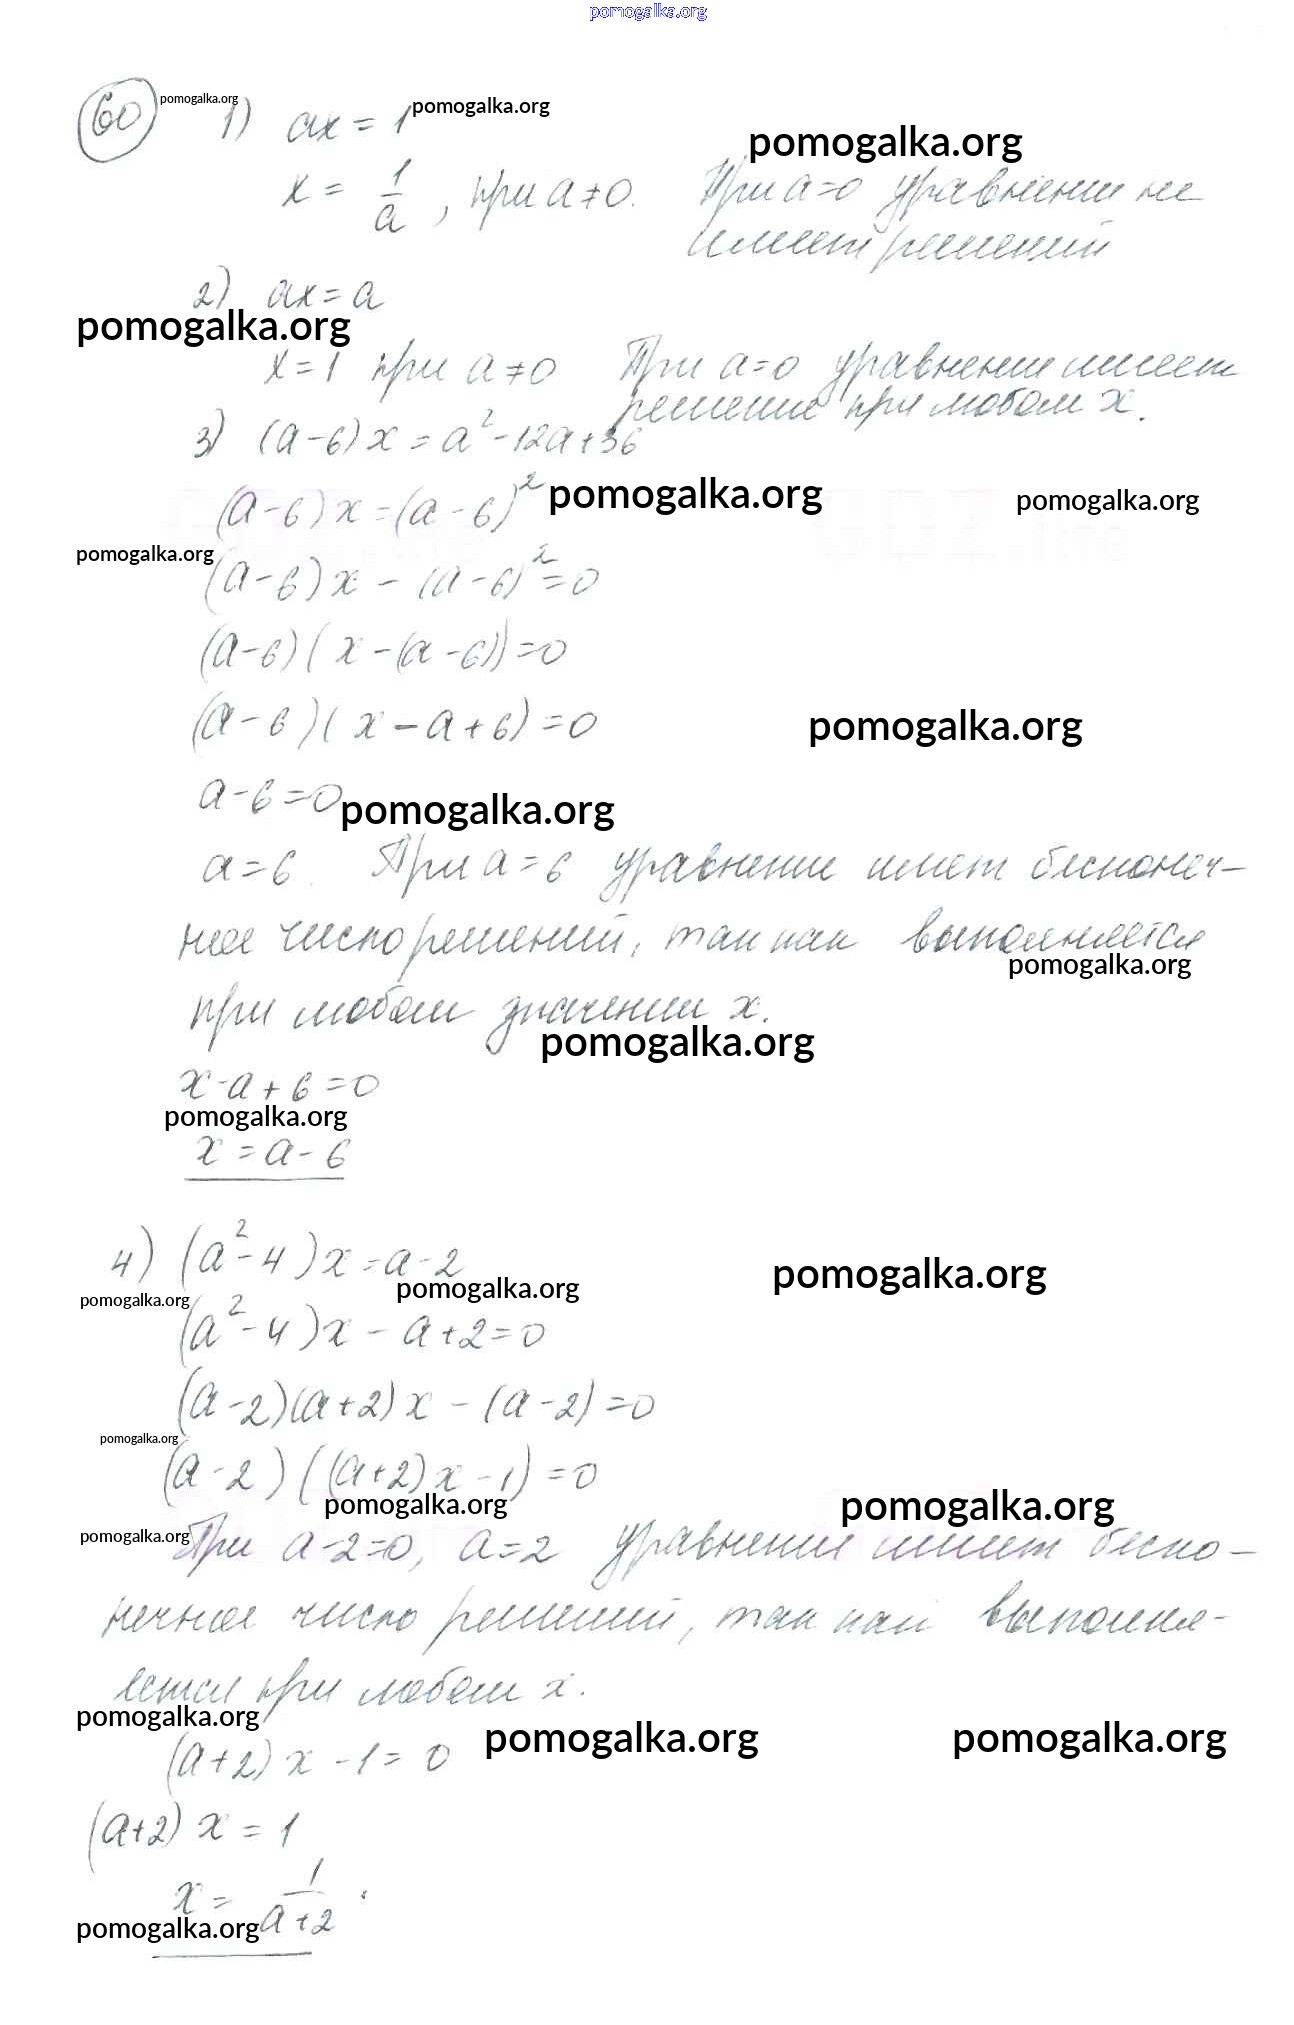 pomogalka.org
60 pomogalka.org 1) ax = 1 pomogalka.org
pomogalka.org
x = 1/a , при a ≠ 0. При a = 0 уравнение не
имеет решений
2) ax = a
pomogalka.org
x = 1 при a ≠ 0 При a = 0 уравнение имеет
решение при любом x.
3) (a - 6) x = a² - 12a + 36
(a - 6) x = (a - 6)² pomogalka.org pomogalka.org
pomogalka.org
(a - 6) x - (a - 6)² = 0
(a - 6) ( x - (a - 6)) = 0
(a - 6) ( x - a + 6) = 0 pomogalka.org
a - 6 = 0 pomogalka.org
a = 6. При a = 6 уравнение имеет бесконеч-
ное число решений, так как выполняется
pomogalka.org
при любом значении x.
pomogalka.org
x - a + 6 = 0
pomogalka.org
x = a - 6
4) (a² - 4) x = a - 2
pomogalka.org pomogalka.org pomogalka.org
(a² - 4) x - a + 2 = 0
(a - 2)(a + 2) x - (a - 2) = 0
pomogalka.org
(a - 2) ( (a + 2) x - 1) = 0
pomogalka.org pomogalka.org
pomogalka.org При a - 2 = 0, a = 2 уравнение имеет беско-
нечное число решений, так как выполня-
ется при любом x.
pomogalka.org pomogalka.org pomogalka.org
(a + 2) x - 1 = 0
(a + 2) x = 1
x = 1/(a + 2) .
pomogalka.org